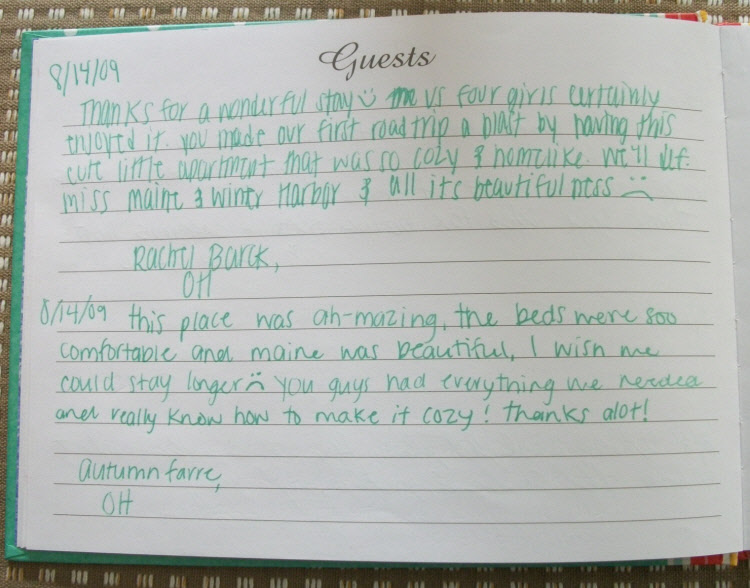 Guests
8/14/09
Thanks for a wonderful stay us four girls certainly
enjoyed it. you made our first roadtrip a blast by having this
cute little apartment that was so cozy & homelike. we'll def.
miss maine & winter Harbor & all its beautifulness
Rachel Barck,
OH
8/14/09 this place was ah-mazing, the beds were soo
comfortable and maine was beautiful, I wish we
could stay longer you guys had everything we needed
and really know how to make it cozy! thanks alot!
autumn farre,
OH